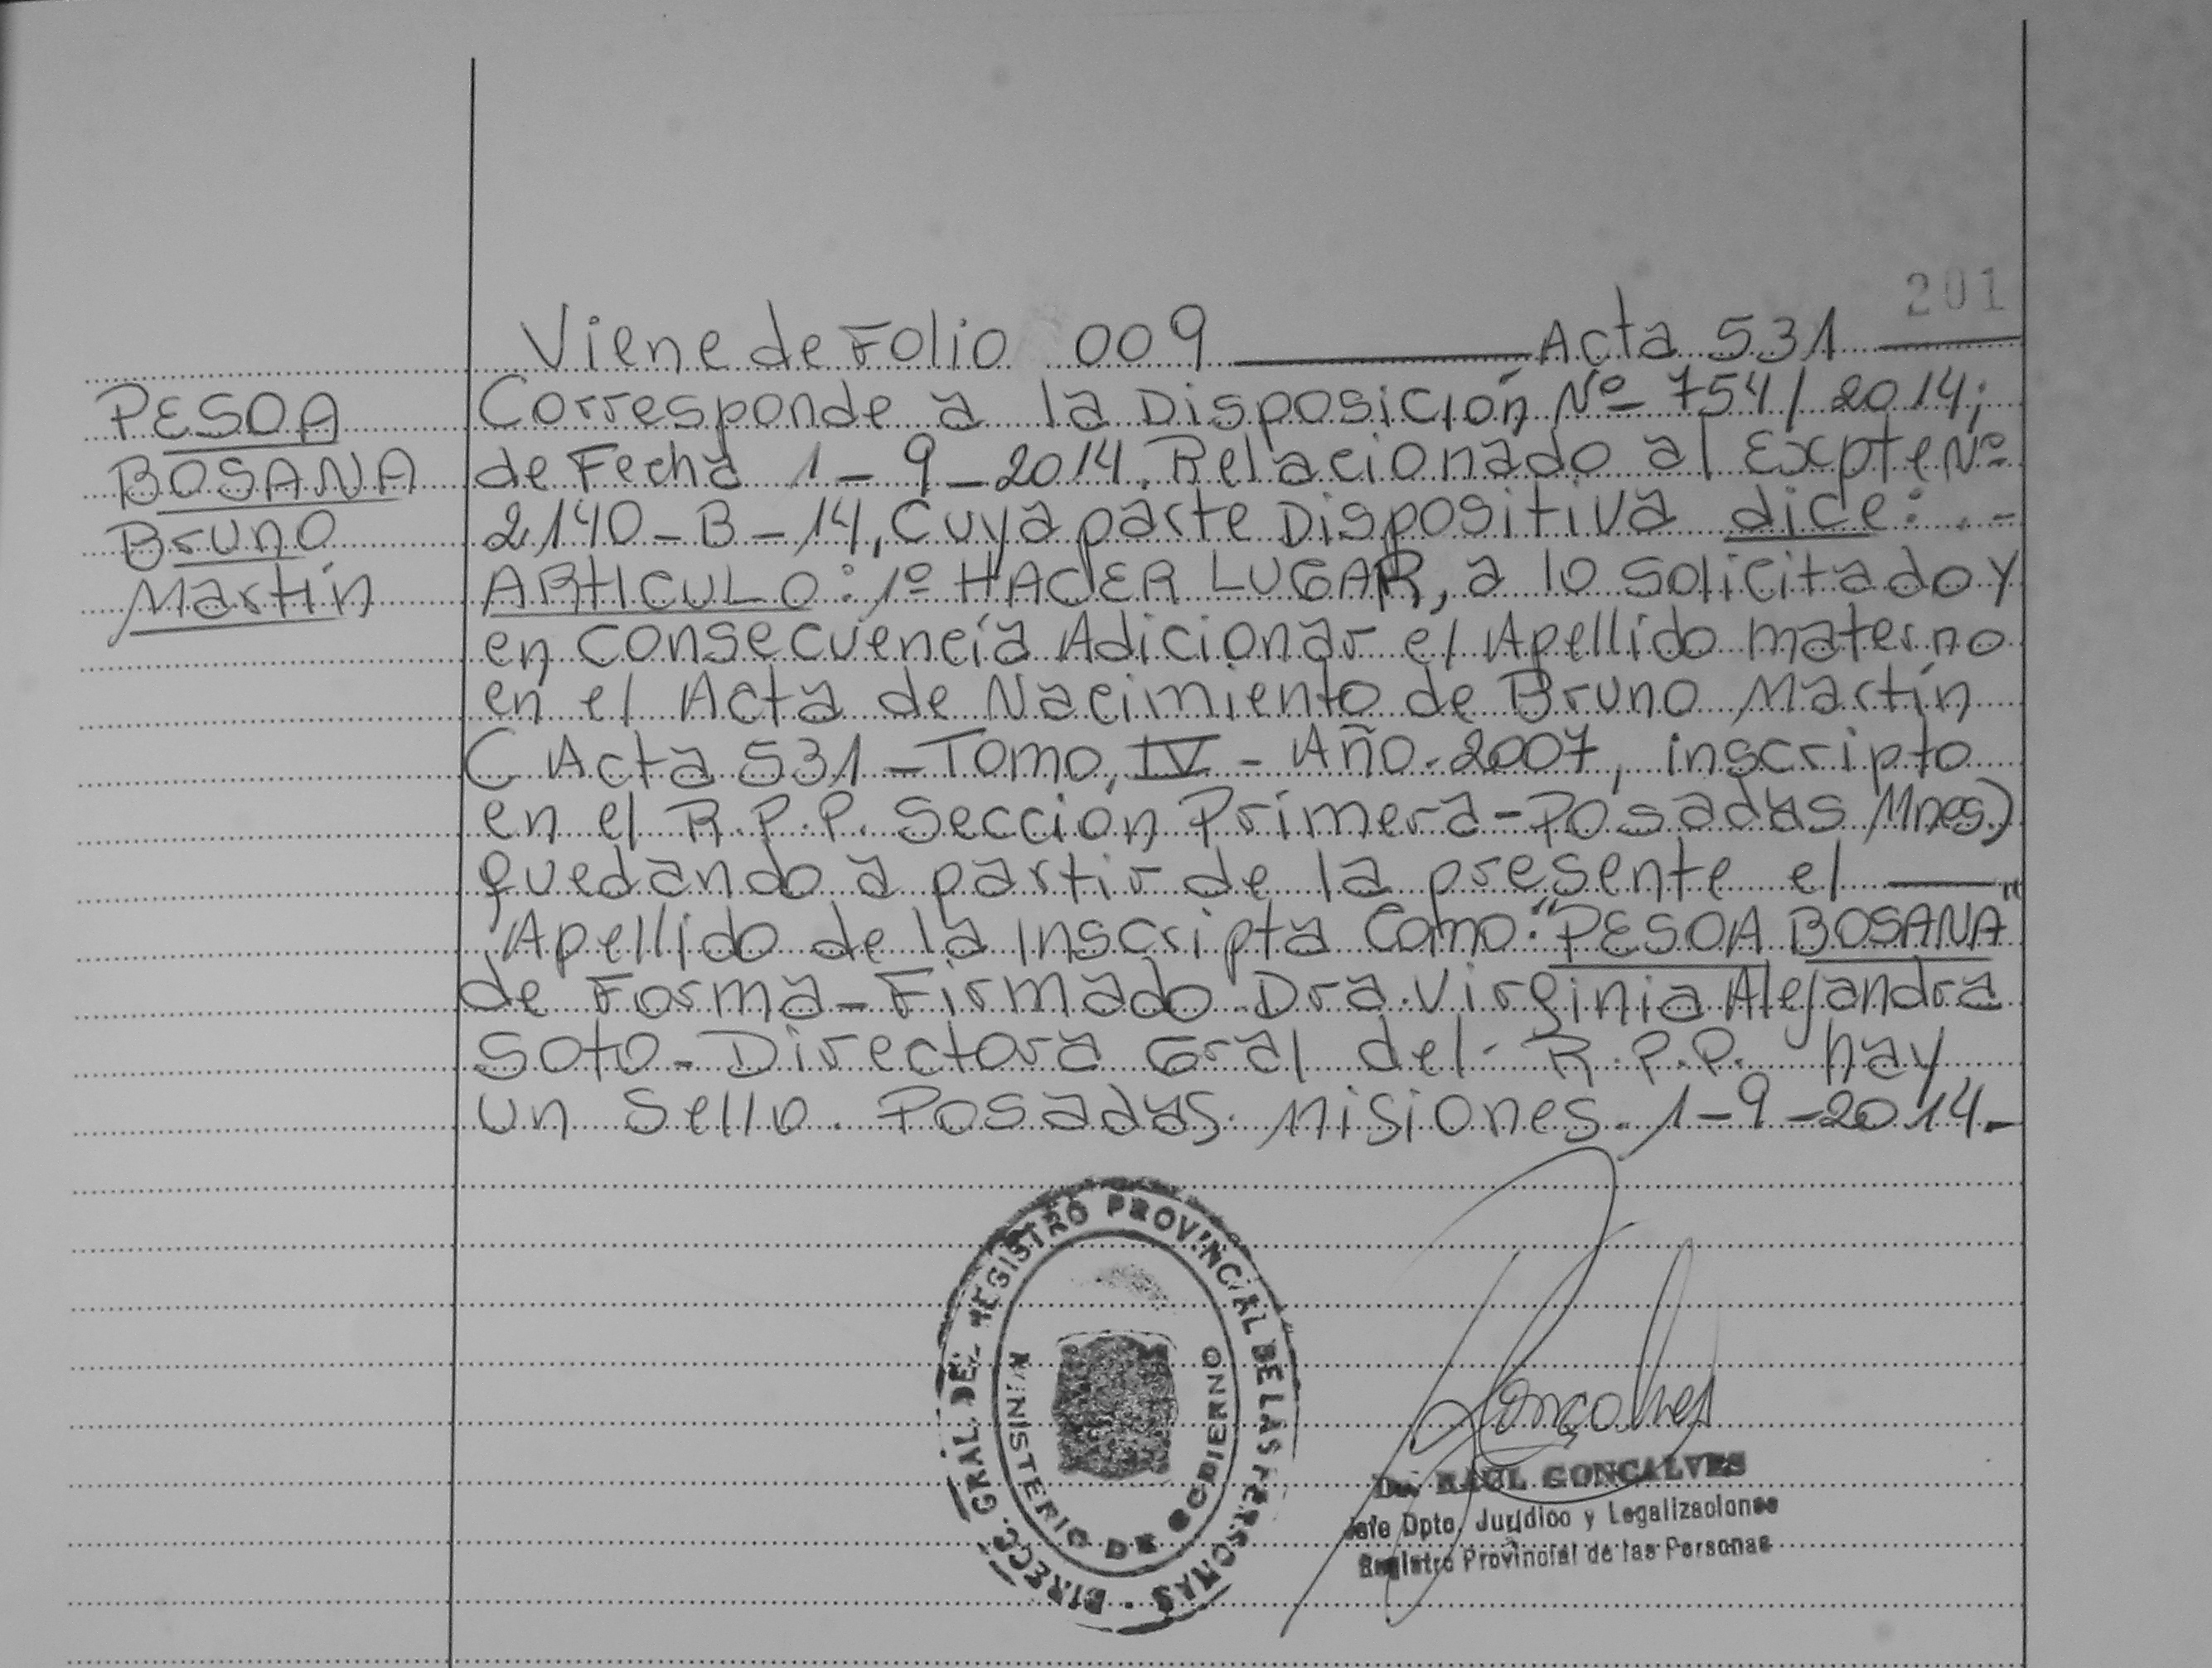 201
Viene de Folio 009 ——— Acta 531 ———
PESOA
BOSANA
Bruno
Martín
Corresponde a la Disposición Nº 754/2014;
de Fecha 1-9-2014. Relacionado al Expte Nº
2140-B-14, cuya parte Dispositiva dice: .-
ARTICULO: 1º HACER LUGAR, a lo solicitado y
en consecuencia Adicionar el Apellido materno
en el Acta de Nacimiento de Bruno Martín
( Acta 531 - Tomo, IV - Año-2007, inscripto
en el R.P.P. Sección Primera-Posadas Mnes)
quedando a partir de la presente el ———
Apellido de la Inscripta Como: "PESOA BOSANA"
de Forma - Firmado Dra. Virginia Alejandra
Soto - Directora Gral del R.P.P. hay
un Sello. Posadas. Misiones. 1-9-2014.-
DIREC. GRAL DEL REGISTRO PROVINCIAL DE LAS PERSONAS
MINISTERIO DE GOBIERNO
Goncalves
Dr. RAUL GONCALVES
Jefe Dpto. Jurídico y Legalizaciones
Registro Provincial de las Personas